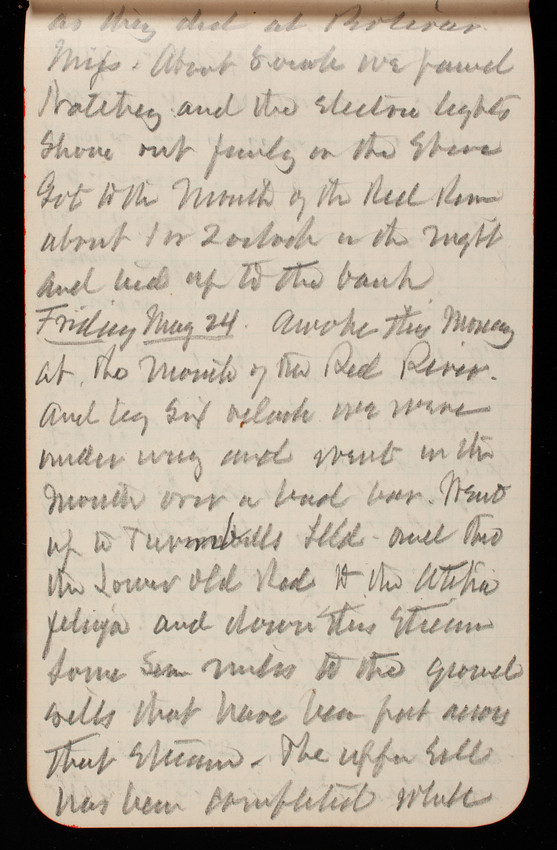 as they did at Bolivar
Miss. About 8 oclock we passed
Natchez and the Electric lights
Shone out finely on the Shore
Got to the Mouth of the Red River
about 1 or 2 oclock in the night
and tied up to the bank
Friday May 24. Awoke this Morning
at the Mouth of the Red River.
And by Six oclock we were
under way and went in the
Mouth over a bad bar. Went
up to Turnbulls Isld. and thro
the Lower Old Red to the Atcha
falaya and down this Stream
some miles to the gravel
sills that have been put across
that Stream. The upper Sill
has been completed while